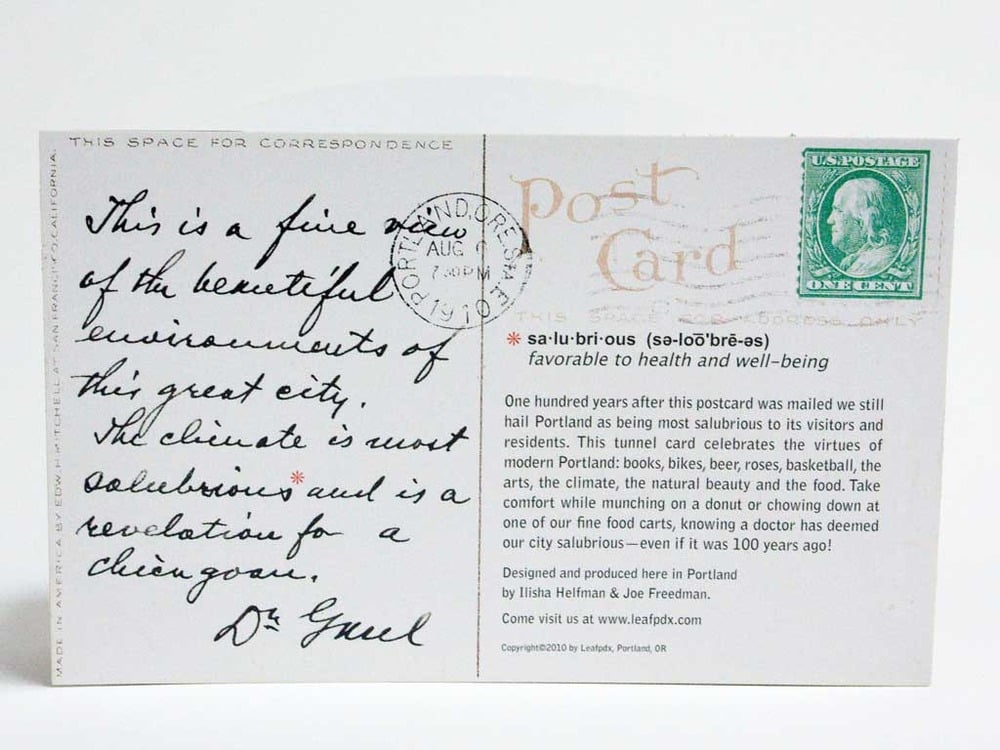 THIS SPACE FOR CORRESPONDENCE
This is a fine view
of the beautiful
environments of
this great city.
The climate is most
salubrious* and is a
revelation for a
chicagoan.
Dr
MADE IN AMERICA BY EDW. H. MITCHELL AT SAN FRANCISCO, CALIFORNIA.
PORTLAND, ORE.
AUG 6
7 30 PM
1910
Post
Card
U.S. POSTAGE
ONE CENT
THIS SPACE FOR ADDRESS ONLY
* sa·lu·bri·ous (sə-lo͞o'brē-əs)
favorable to health and well-being
One hundred years after this postcard was mailed we still
hail Portland as being most salubrious to its visitors and
residents. This tunnel card celebrates the virtues of
modern Portland: books, bikes, beer, roses, basketball, the
arts, the climate, the natural beauty and the food. Take
comfort while munching on a donut or chowing down at
one of our fine food carts, knowing a doctor has deemed
our city salubrious—even if it was 100 years ago!
Designed and produced here in Portland
by Ilisha Helfman & Joe Freedman.
Come visit us at www.leafpdx.com
Copyright©2010 by Leafpdx, Portland, OR